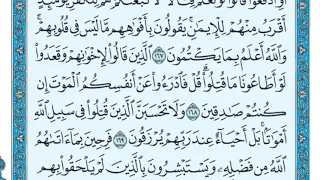 أَوِ ادْفَعُوا۟ قَالُوا۟ لَوْ نَعْلَمُ قِتَالًا لَّاتَّبَعْنَٰكُمْ هُمْ لِلْكُفْرِ يَوْمَئِذٍ
أَقْرَبُ مِنْهُمْ لِلْإِيمَٰنِ يَقُولُونَ بِأَفْوَٰهِهِم مَّا لَيْسَ فِى قُلُوبِهِمْ
وَاللَّهُ أَعْلَمُ بِمَا يَكْتُمُونَ ١٦٧ الَّذِينَ قَالُوا۟ لِإِخْوَٰنِهِمْ وَقَعَدُوا۟
لَوْ أَطَاعُونَا مَا قُتِلُوا۟ قُلْ فَادْرَءُوا۟ عَنْ أَنفُسِكُمُ الْمَوْتَ إِن
كُنتُمْ صَٰدِقِينَ ١٦٨ وَلَا تَحْسَبَنَّ الَّذِينَ قُتِلُوا۟ فِى سَبِيلِ اللَّهِ
أَمْوَٰتًۢا بَلْ أَحْيَآءٌ عِندَ رَبِّهِمْ يُرْزَقُونَ ١٦٩ فَرِحِينَ بِمَآ ءَاتَىٰهُمُ
اللَّهُ مِن فَضْلِهِۦ وَيَسْتَبْشِرُونَ بِالَّذِينَ لَمْ يَلْحَقُوا۟ بِهِم